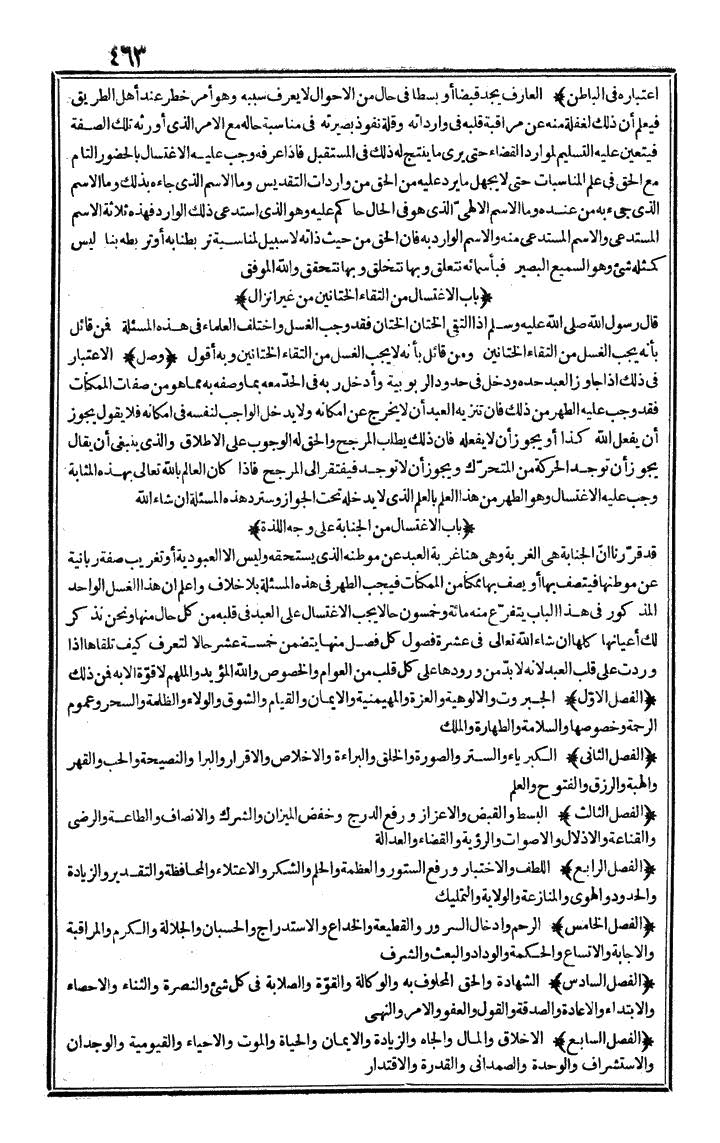 ٤٦٣
اعتباره فى الباطن﴾ العارف يجد قبضا أو بسطا فى حال من الاحوال لا يعرف سببه وهو أمر خطر عند أهل الطريق
فيعلم أن ذلك لغفلة منه عن مراقبة قلبه فى وارداته وقلة نفوذ بصيرته فى مناسبة حاله مع الامر الذى أورثه تلك الصفة
فيتعين عليه التسليم لموارد القضاء حتى يرى ما ينتج له ذلك فى المستقبل فاذا عرفه وجب عليه الاغتسال بالحضور التام
مع الحق فى علم المناسبات حتى لا يجهل ما يرد عليه من الحق من واردات التقديس وما الاسم الذى جاءه بذلك وما الاسم
الذى جىء به من عنده وما الاسم الالهىّ الذى هو فى الحال حاكم عليه وهو الذى استدعى ذلك الوارد فهذه ثلاثة الاسم
المستدعى والاسم المستدعى منه والاسم الوارد به فان الحق من حيث ذاته لا سبيل لمناسبة تربطنا به أو تربطه بنا ليس
كمثله شئ وهو السميع البصير فبأسمائه نتعلق وبها نتخلق وبها نتحقق والله الموفق
﴿باب الاغتسال من التقاء الختانين من غير انزال﴾
قال رسول الله صلى الله عليه وسلم اذا التقى الختان الختان فقد وجب الغسل واختلف العلماء فى هذه المسئلة فن قائل
بأنه يجب الغسل من التقاء الختانين ومن قائل بأنه لا يجب الغسل من التقاء الختانين وبه أقول ﴿وصل﴾ الاعتبار
فى ذلك اذا جاوز العبد حده ودخل فى حدود الربوبية وأدخل ربه فى الحدّ معه بما وصفه به مما هو من صفات الممكنات
فقد وجب عليه الطهر من ذلك فان تنزيه العبد أن لا يخرج عن امكانه ولا يدخل الواجب لنفسه فى امكانه فلا يقول يجوز
أن يفعل الله كذا أو يجوز أن لا يفعله فان ذلك يطلب المرجح والحق له الوجوب على الاطلاق والذى ينبغى أن يقال
يجوز أن توجد الحركة من المتحرّك ويجوز أن لا توجد فيفتقر الى المرجح فاذا كان العالم بالله تعالى بهذه المثابة
وجب عليه الاغتسال وهو الطهر من هذا العلم بالعلم الذى لا يدخله تحت الجواز وسترد هذه المسئلة ان شاء الله
﴿باب الاغتسال من الجنابة على وجه اللذة﴾
قد قرّرنا انّ الجنابة هى الغربة وهى هنا غربة العبد عن موطنه الذى يستحقه وليس الا العبودية أو تغريب صفة ربانية
عن موطنها فيتصف بها أو يصف بها ممكا من الممكنات فيجب الطهر فى هذه المسئلة بلا خلاف واعلم ان هذا الغسل الواحد
المذكور فى هذا الباب يتفرّع منه مائة وخمسون حالا يجب الاغتسال على العبد فى قلبه من كل حال منها ونحن نذكر
لك أعيانها كلها ان شاء الله تعالى فى عشرة فصول كل فصل منها يتضمن خمسة عشر حالا لتعرف كيف تلقاها اذا
وردت على قلب العبد لانه لا بدّ من ورودها على كل قلب من العوام والخصوص والله المؤيد والملهم لا قوّة الا به فن ذلك
﴿الفصل الاوّل﴾ الجبروت والالوهية والعزة والمهيمنية والايمان والقيام والشوق والولاء والظلمة والسحر وعموم
الرحمة وخصوصها والسلامة والطهارة والملك
﴿الفصل الثانى﴾ الكبرياء والستر والصورة والخلق والبراءة والاخلاص والاقرار والبرا والنصيحة والحب والقهر
والهبة والرزق والفتوح والعلم
﴿الفصل الثالث﴾ البسط والقبض والاعزاز ورفع الدرج وخفض الميزان والشرك والانصاف والطاعة والرضى
والقناعة والاذلال والاصوات والرؤية والقضاء والعدالة
﴿الفصل الرابع﴾ اللطف والاختبار ورفع الستور والعظمة والحلم والشكر والاعتلاء والمحافظة والتقدير والزيادة
والحدود والهوى والمنازعة والولاية والتمليك
﴿الفصل الخامس﴾ الرحم وادخال السرور والقطيعة والخداع والاستدراج والحسبان والجلالة والكرم والمراقبة
والاجابة والاتساع والحكمة والوداد والبعث والشرف
﴿الفصل السادس﴾ الشهادة والحق المحلوف به والوكالة والقوّة والصلابة فى كل شئ والنصرة والثناء والاحصاء
والابتداء والاعادة والصدقة والقول والعفو والامر والنهى
﴿الفصل السابع﴾ الاخلاق والمال والجاه والزيادة والايمان والحياة والموت والاحياء والقيومية والوجدان
والاستشراف والوحدة والصمدانى والقدرة والاقتدار